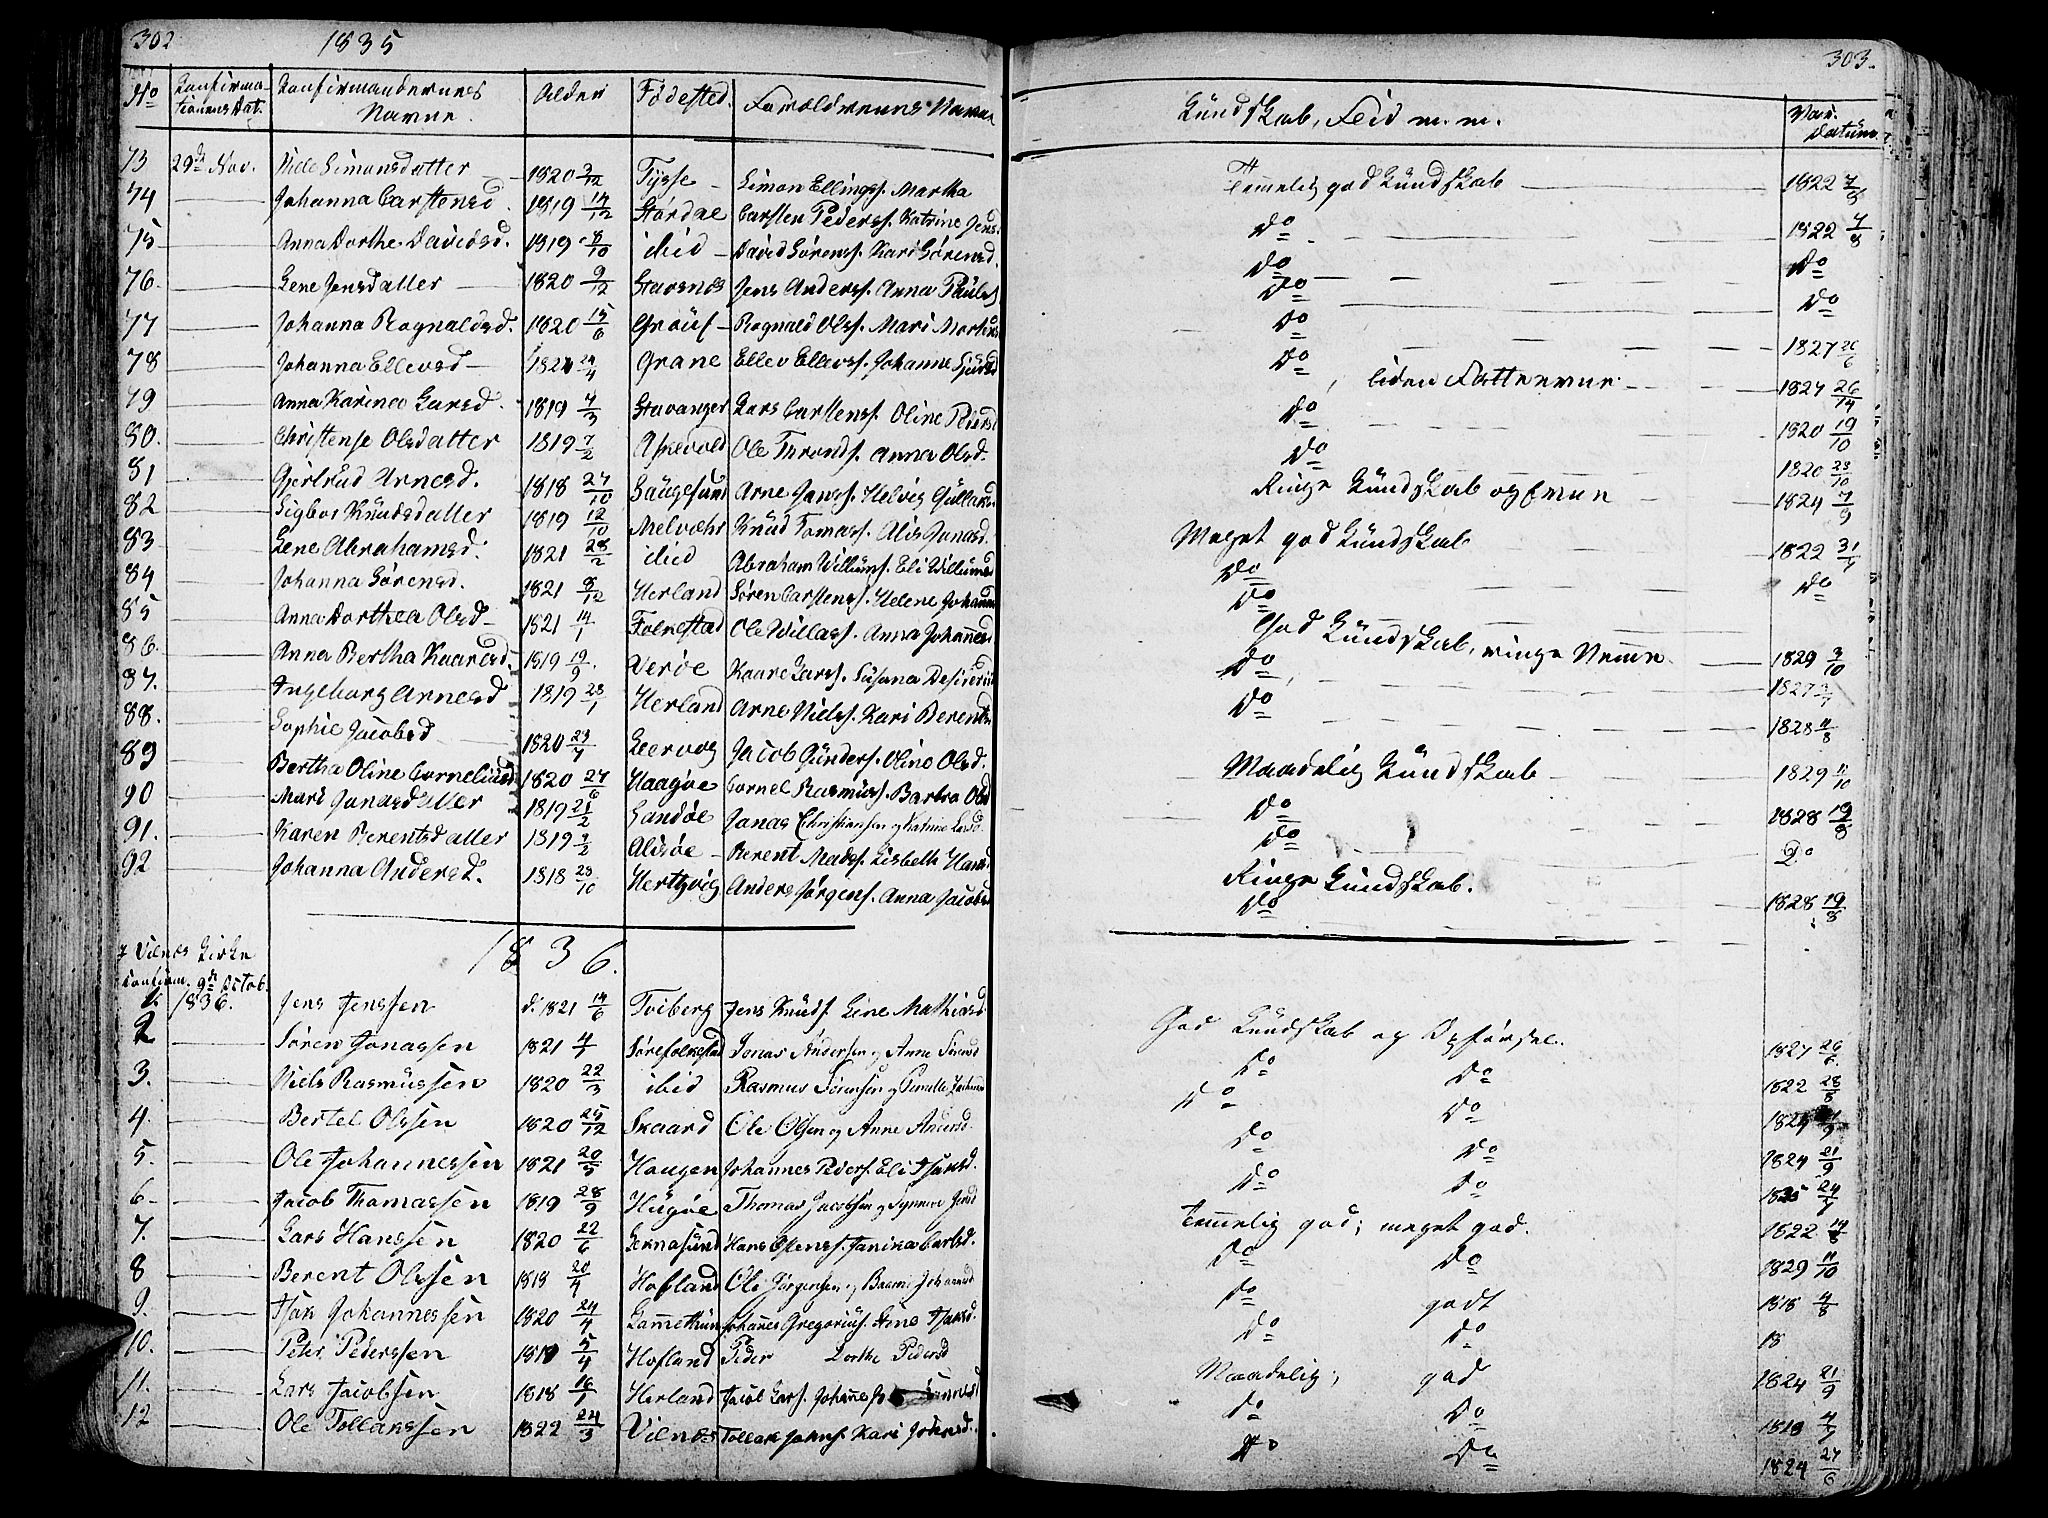 302 1835
No Konfirmationens Dat. Konfirmandernes Navne. Alder Fødested. Forældrenes Navne
73 29de Nov. Simonsdatter 1820 Tysse Simon Ellingss. Martha
74 Johanna Carstensd. 1819 14/12 Stordae Carsten Pederss. Katrine Jensd
75 Anna Dorthe Davidsd. 1819 8/10 ibid David Sørenss. Kari Sørensd.
76. Lene Jensdatter 1820 9/12 Jens Anderss. Anna Paulsd
77 Johanna Rognaldsd. 1820 15/6 Rognald Olss. Mari
78 Johanna Ellevsd 24/4 Grane Ellev Ellevss. Johanne
79 Anna Karine Larsd. 1819 4/3 Stavanger Lars Carstens. Oline Pedersd
80. Christense Olsdatter 1819 7/2 Ole Tronds. Anna Olsd.
81 Gjertrud Arnesd. 1818 27/10 Arne Janss. Helvig
82 Knudsdatter 1819 12/10 Melvær Knud Tomass. Alis Janasd.
83 Lene Abrahamsd. 1821 28/2 ibid Abraham Willums. Eli Willumsd
84 Johanna Sørensd. 1821 8/12 Herland Søren Carstens. Helene
85 Anna Dorthea Olsd 1821 14/1 Folkestad Ole Willass. Anna Johannesd
86. Anna Bertha Kaaresd. 1819 19/9 Værøe Kaare Larss. Susana
87. Ingeborg Arnesd 1819 23/1 Herland Arne Nielss. Kari Berentsd
88. Sophie Jacobsd 1820 23/7 Leervog Jacob Gunders. Oline Olsd.
89 Bertha Oline Corneliusd 1820 27/6 Haagøe Cornel Rasmuss. Barbro Olsd
90 Mari Janasdatter 1819 21/2 Sandøe Janas Christiansen og Katrine Larsd.
91. Karen Berentsdatter 1819 Aldøe Berent Madss. Lisbeth Hansd
92 Johanna Andersd. 1818 23/10 Hertzvig Anders Jørgens. Anna Jacobsd
1836.
Vilnes Kirke
Confirm. 9de Octob.
1. 1836. Jens Jenssen d. 1821 14/6 Tviberg Jens Knuds. Line Mathiasd
2 Søren Jonassen 1821 Sørefolkestad Jonas Andersen og Anne Sørensd
3. Niels Rasmussen 1820 22/3 ibid Rasmus Sørensen og Pernille
4. Bertel Olssen 1820 25/12 Skaard Ole Olsen og Anne Andersd.
5. Ole Johannessen 1821 20/5 Haugen Johannes Peders. Eli Isaksd.
6 Jacob Thomassen 1819 28/9 Hugøe Thomas Jacobsen og Synneve Jensd
7. Lars Hanssen 1820 22/6 Hans Olenss. Janika Carlsd.
8 Berent Olssen 1818 20/4 Hofland Ole Jørgensen og
9. Isak Johannessen 1820 24/4 Johannes Gregorius. Isaksd.
10. Peter Pederssen 1819 5/4 Hofland Peder Dorthe Pedersd
11. Lars Jacobsen 1818 16/1 Herland Jacob Lars.
12 Ole Tollakssen 1822 24/3 Vilnes Tollak Johns. Kari
303.
Kundskab, Flid m. m. Vac. Datum.
Temmelig god Kundskab 1822 7/8
Do 1822 7/8
Do Do
Do Do
Do 1827 26/6
Do, liden Fatteevne 1827 26/14
Do 1820 19/10
Do 1820 23/10
Ringe Kundskab og Evne 1824 7/9
Meget god Kundskab 1822
Do Do
Do
God Kundskab, ringe Nemme 1829 3/10
Do 1827
Do 1828 11/8
Maadelig Kundskab 1829 11/10
Do 1828 19/8
Do Do
Ringe Kundskab.
Do 1828 19/8
God Kundskab og Opførsel. 1827 26/6
Do Do 1822 28/8
Do Do
Do Do 1824 21/9
Do Do 1825 24/7
Temmelig god; meget god. 1822 14/8
Do Do 1829 11/10
Do godt 1818 4/8
Do Do 18
Maadelig; god 1824 21/9
Do Do 1818
Do Do 1824 27/6